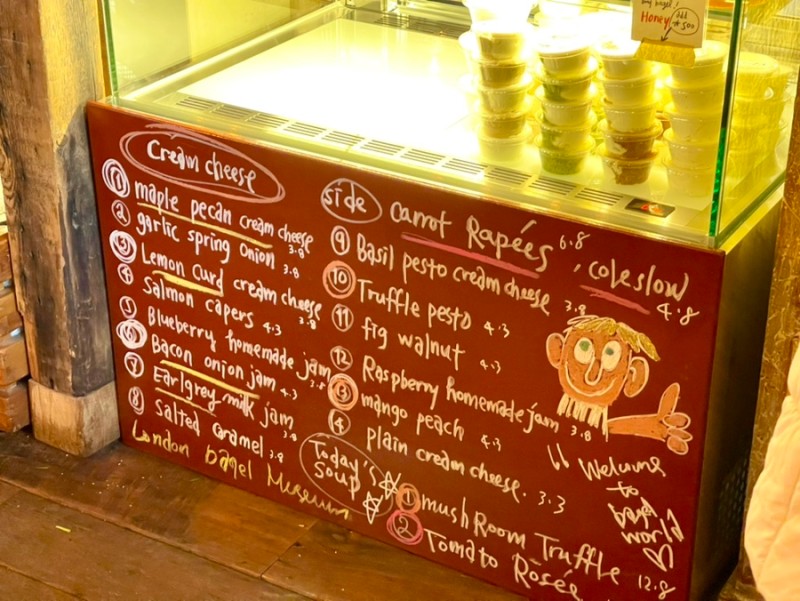 bagel!
Honey
add
Cream cheese
① maple pecan cream cheese 3.8
② garlic spring onion 3.8
③ Lemon curd cream cheese 3.8
④ Salmon capers 4.3
⑤ Blueberry homemade jam 3.8
⑥ Bacon onion jam 4.3
⑦ Earlgrey milk jam 3.8
⑧ Salted caramel 3.8
London bagel Museum
side carrot Rapées 6.8 , coleslow 4.8
⑨ Basil pesto cream cheese 3.8
⑩ Truffle pesto 4.3
⑪ fig walnut 4.3
⑫ Raspberry homemade jam 3.8
⑬ mango peach 4.3
⑭ plain cream cheese. 3.3
Today's
soup
① mushRoom Truffle
② Tomato Rosée 12.8
Welcome
to
bagel
world